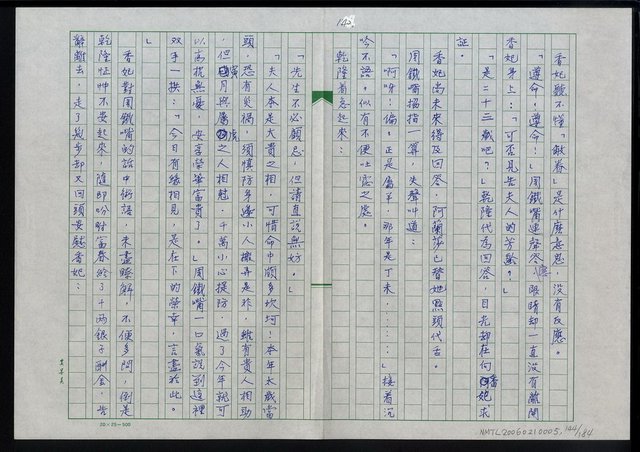 148
香妃聽不懂「敝眷」是什麼意思，沒有反應。
「遵命，遵命！」周鐵嘴連聲答應，眼睛却一直沒有離開
香妃身上：「可否見告夫人的芳齡？」
「是二十三歲吧？」乾隆代為回答，目光却在向香妃求
証。
香妃尚未來得及回答，阿蘭莎已替她點頭代言。
周鐵嘴搯指一算，失聲叫道：
「啊呀！偏，正是屬羊，那年是丁未………」接着沉
吟不語，似有不便吐露之處。
乾隆着急起來：
「先生不必顧忌，但請直說無妨。」
「夫人本是大貴之相，可惜命中頗多坎坷！本年太歲當
頭，恐有災禍，須慎防身邊小人搬弄是非，雖有貴人相助
，但寅月與屬虎之人相尅，千萬小心提防，過了今年就可
以高枕無憂，安享榮華富貴了。」周鐵嘴一口氣說到這裡
双手一拱：「今日有緣相見，是在下的榮幸，言盡於此。
」
香妃對周鐵嘴的話中術語，未盡瞭解，不便多問，倒是
乾隆怔忡不安起來，隨即吩咐富春給了千兩銀子酬金，告
辭離去，走了幾步却又回頭安慰香妃：
20×25=500
NMTL20060210005, 144/184